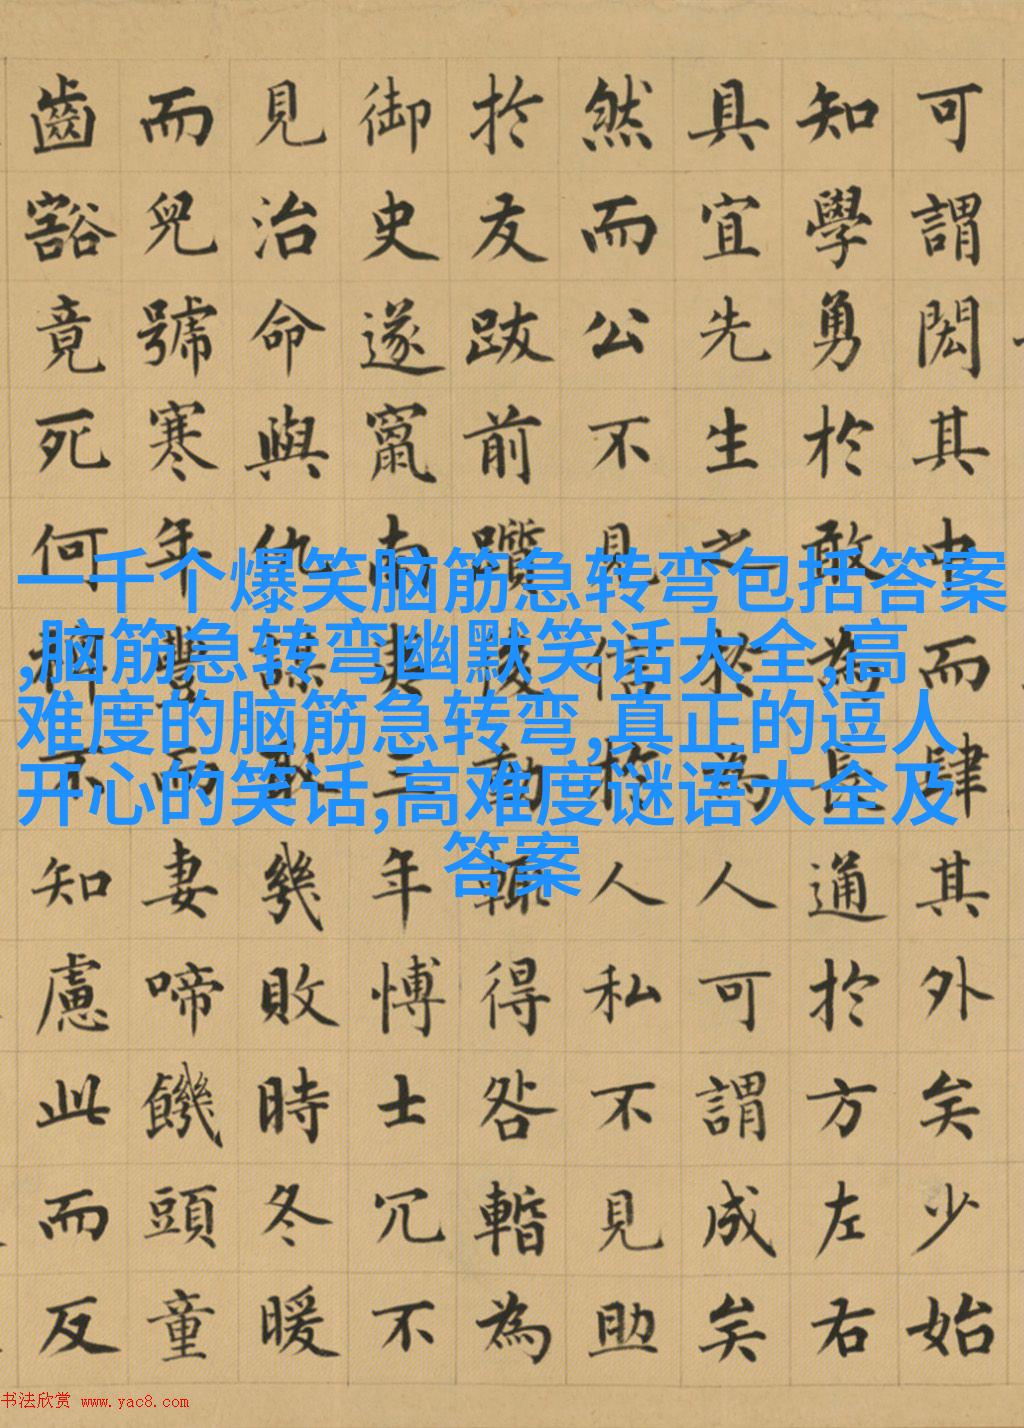 可謂閎其中而肆其外矣少始
知學勇於敢為長通於方左右
具宜先生之於為人可謂成矣
然而公不見信於人私不見助
於友跋前躓後動輒得咎暫為
御史遂竄南夷三年愽士冗不
見治命與仇謀取敗幾時冬暖
而兒號寒年豐而妻啼饑頭童
齒豁竟死何裨不知慮此而反
一千个爆笑脑筋急转弯包括答案
,脑筋急转弯幽默笑话大全,高
难度的脑筋急转弯,真正的逗人
开心的笑话,高难度谜语大全及
答案
书法欣赏 www.yac8.com